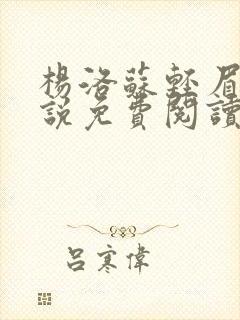 楊洛蘇輕眉
說免費閱讀
呂寒偉